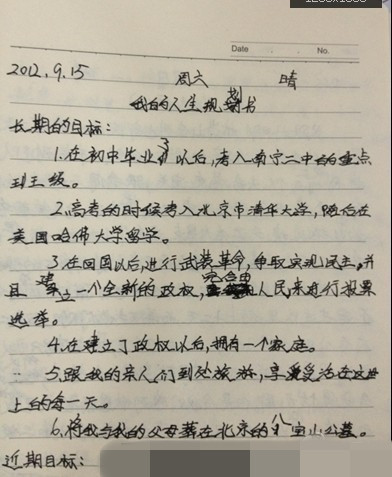 Date No.
2012.9.15 周六 晴
我的人生规划书
长期的目标：
1.在初中毕业了以后,考入南宁二中的重点
到王级。
2.高考的时候考入北京市清华大学,随后在
美国哈佛大学留学。
3.在回国以后,进行武装革命,争取实现民主,并
且建立一个全新的政权,完全由人民来进行投票
选举。
4.在建立了政权以后,拥有一个家庭。
5.跟我的亲人们到处旅游,享受生活在这世
上的每一天。
6.将我与我的父母葬在北京的八宝山公墓。
近期目标：